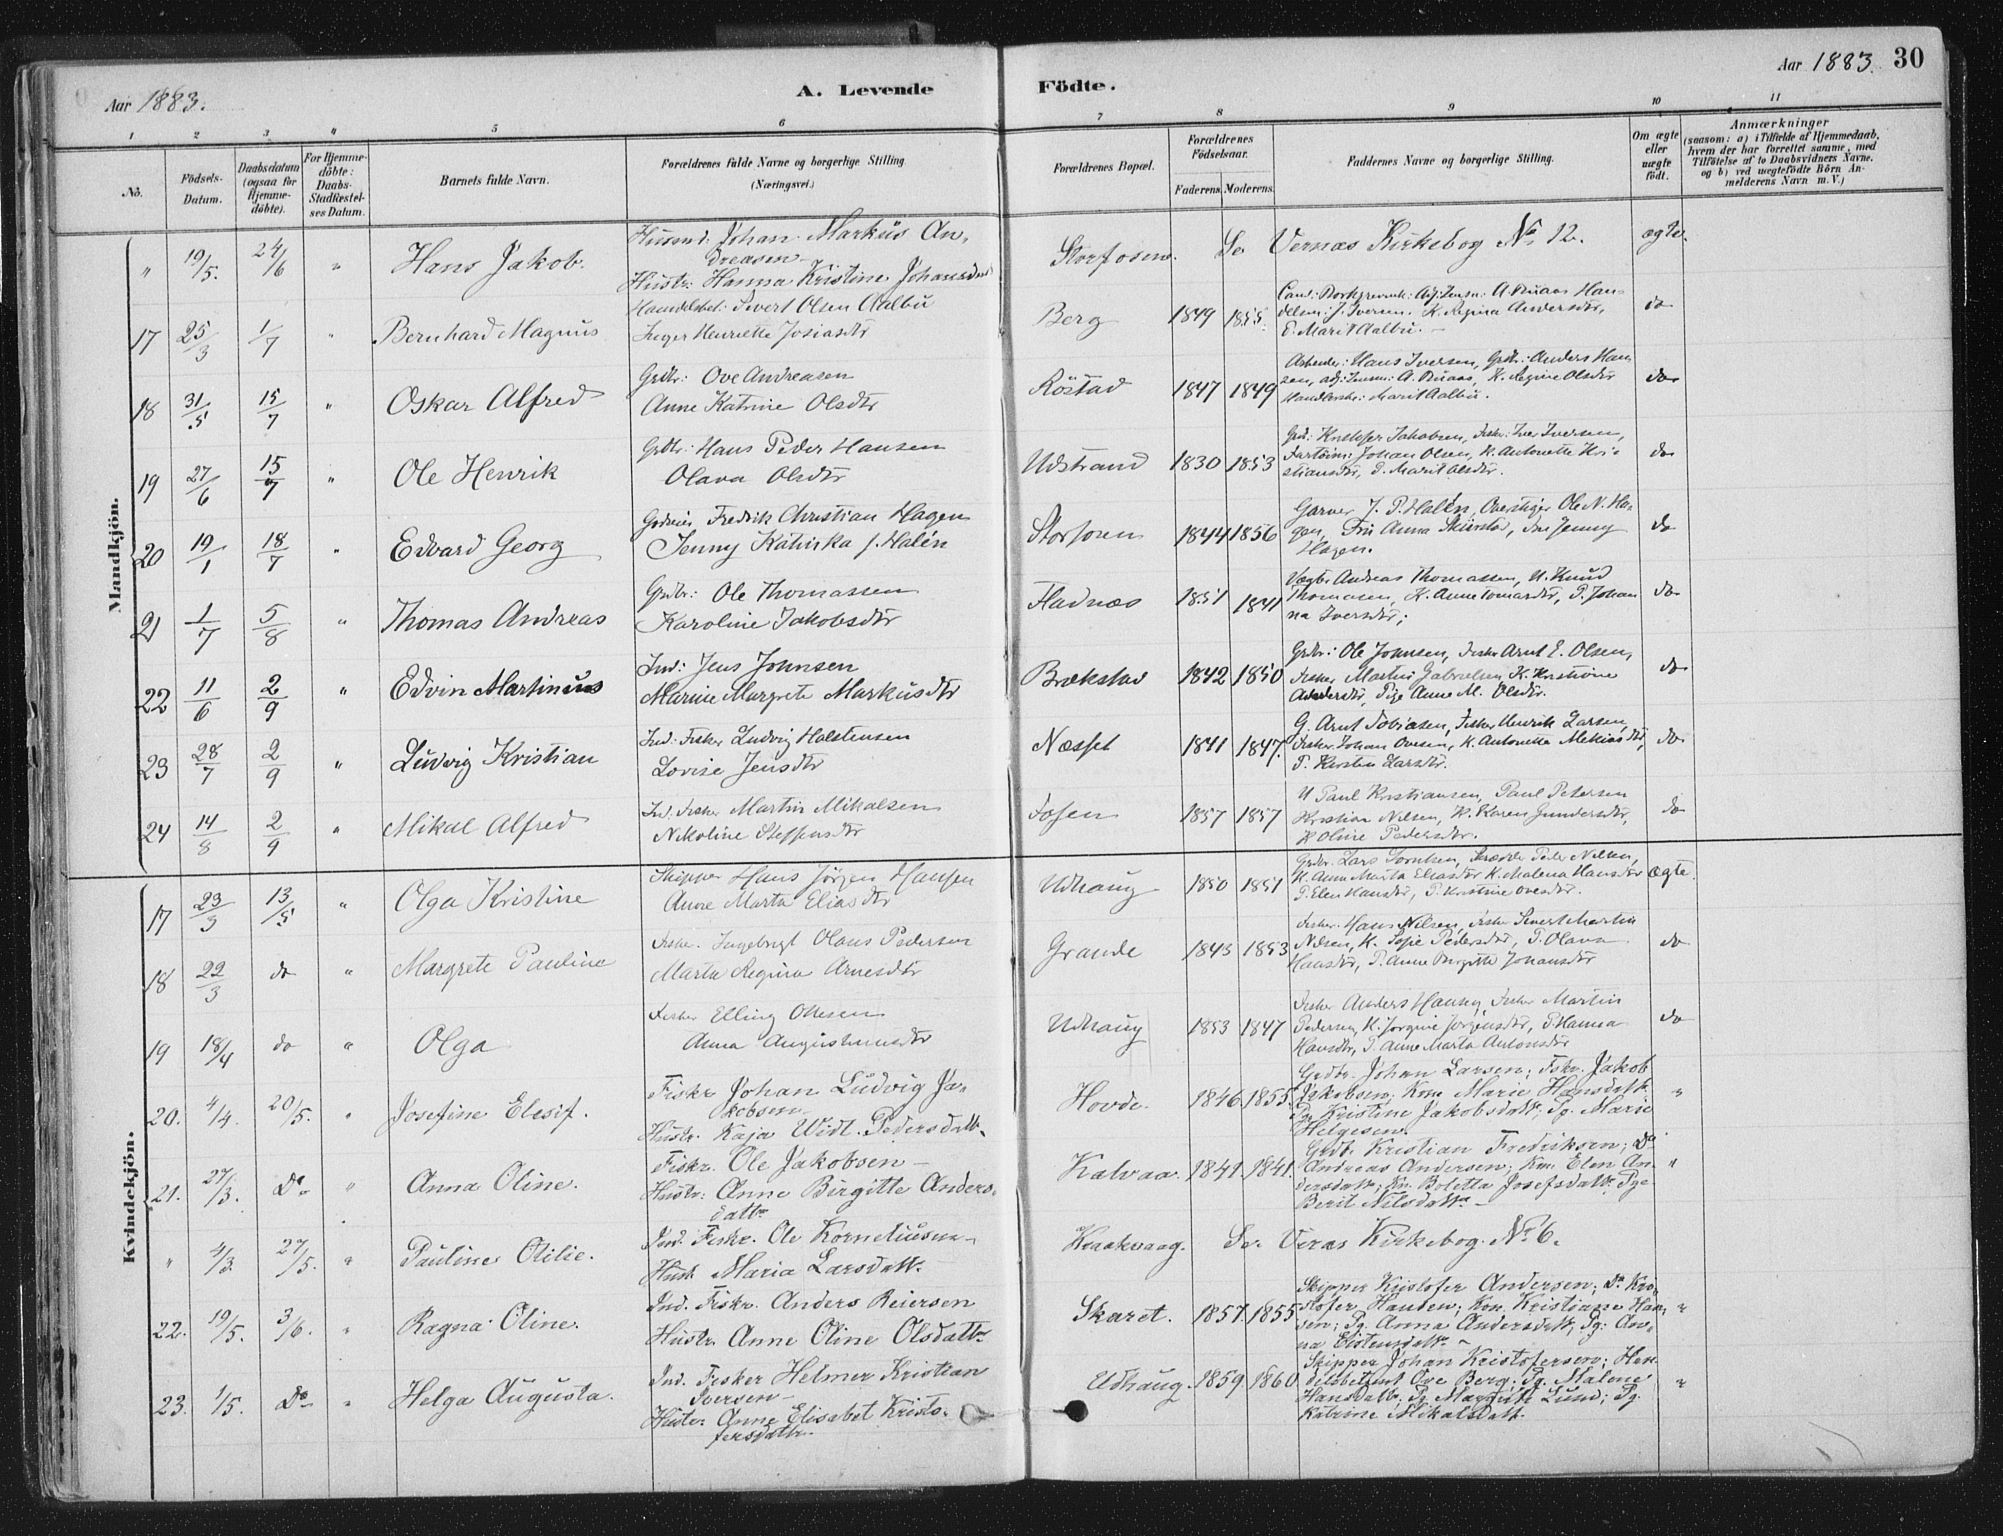 Aar 1883.
A. Levende
Födte.
Aar 1883. 30
1 2 3 4 5 6 7 8 9 10 11
No.
Födsels-
Datum.
Daabsdatum
(ogsaa for
Hjemme-
döbte).
For Hjemme-
döbte:
Daabs-
Stadfæstel-
ses Datum.
Barnets fulde Navn.
Forældrenes fulde Navne og borgerlige Stilling
(Næringsvei.)
Forældrenes Bopæl.
Forældrenes
Födselsaar.
Faderens. Moderens.
Faddernes Navne og borgerlige Stilling.
Om ægte
eller
uægte
födt.
Anmærkninger
(saasom: a) i Tilfælde af Hjemmedaab,
hvem der har forrettet samme, med
Tilföielse af to Daabsvidners Navne,
og b) ved uægtefödte Börn An-
melderens Navn m.V.)
Mandkjön.
" 19/5. 24/6 " Hans Jakob.
Johan Markus An-
dreasen
Hustr: Hanna Kristine Johansdtr
Storfosen. Se Vernæs Kirkebog No 12. ægte.
17 25/3 1/7 " Bernhard Magnus
Sivert Olsen Aalbu
Inger Henriette Josiasdtr
Berg 1849 1855.
J. Iversen. K. Regina Andersdtr,
E. Marit Aalbu. do
18 31/5 15/7 " Oskar Alfred
Grdbr: Ove Andreasen
Anne Katrine Olsdtr
Röstad 1847 1849
Arbeider: Hans Iversen, Grdbr: Anders Han-
sen, A. Buaas, K. Regine Olsdtr
Marit Aalbu. do
19 27/6 15/7 " Ole Henrik
Grdbr: Hans Peder Hansen
Olava Olsdtr
Udstrand 1830 1853
Kristofer Jakobsen, Fisker: Iver Iversen,
Johan Olsen, K. Antonette Kri-
stiansdtr, P. Marit Olsdtr. do
20 19/1 18/7 " Edvard Georg
Godseier Fredrik Christian Hagen
Jenny Katinka f. Halén
Storfosen 1844 1856
Garver J. P. Halén, Ole N. Ha-
gen, Fru Anna, Jenny
Hagen. do
21 1/7 5/8 " Thomas Andreas
Grdbr: Ole Thomassen
Karoline Jakobsdtr
Fladnæs 1851 1841
Andreas Thomassen, U. Knud
Thomasen, K. Anne Tomasdtr, P. Johan
na Iversdtr; do
22 11/6 2/9 " Edvin Martinius
Ind: Jens Johnsen
Marine Margrete Markusdtr
Brækstad 1842 1850
Grdbr: Ole Johnsen, Fisker Arnt E. Olsen,
Fisker Martin Gabrielsen K. Kristine
Andersdtr, Pige Anne M. Olsdtr. do
23 28/7 2/9 " Ludvig Kristian
Ind: Fisker Ludvig Halstensen
Lovise Jensdtr
Næsset 1841 1847.
G. Arnt Tobiasen, Fisker Henrik Larsen,
Fisker Johan Ovesen, K. Antonette Mekiasdtr,
P. Kirstin Larsdtr. do
24 14/8 2/9 " Mikal Alfred
Ind. Fisker Martin Mikalsen
Nikoline Steffensdtr
Fosen 1857 1857
U Paul Kristiansen, Paul Petersen
Kristian Nilsen, K. Karen Gundersdtr,
K Oline Pedersdtr. do
Kvindekjön.
17 23/3 13/5 " Olga Kristine
Skipper Hans Jörgen Hansen
Anne Marta Eliasdtr
Udhaug 1850 1851
Grdbr. Lars Peder Nilsen,
K. Anne Marta Eliasdtr K. Malena Hansdtr
P. Elen Hansdtr, P. Kristine Ovesdtr. ægte.
18 22/3 do " Margrete Pauline
Fisker. Ingebrigt Olaus Pedersen
Marta Regina Arnesdtr
Grande 1843 1853
Fisker. Hans Nilsen, Fisker Sivert Martin
Nilsen, K. Sofie Pedersdtr, P. Olava
Hansdtr, P. Anne Birgitte Johansdtr do
19 18/4 do " Olga
Fisker Elling Olsen
Anna Augustinusdtr
Udhaug 1853 1847
Fisker Anders Hansen, Fisker Martin
Pedersen, K. Jörgine Jörgensdtr, P. Hanna
Hansdtr, P. Anne Marta Antonsdtr do
20. 4/4. 20/5. " Josefine Elesif.
Fiskr Johan Ludvig Ja-
kobsen
Hustr. Kaja Widt. Pedersdatt.
Hovde. 1846. 1855.
Grdbr. Johan Larsen; Fskr. Jakob
Jakobsen; Kone Marie Hansdatt.
Pge Kristine Jakobsdatt, Pg. Marie
Helgesen. "
21. 27/3. Do " Anna Oline.
Fiskr. Ole Jakobsen
Hustr: Anne Birgitte Anders-
datt.
Kalvaa. 1841. 1841.
Grdbr. Kristian Fredriksen; Do
Andreas Andersen; Kone Elen An-
dersdatt; Kn. Boletta Josefsdatt. Pge
Berit Nilsdatt. "
" 4/3. 27/5. " Pauline Otilie.
Ind. Fiskr. Ole Korneliusen
Hust. Maria Larsdatt.
Kraakvaag. Se Vernæs Kirkebog No 6.
22. 19/5. 3/6. " Ragna Oline.
Ind. Fiskr. Anders Reiersen
Hustr. Anne Oline Olsdatt.
Skaret. 1857. 1855
Skipper Kristofer Andersen; Do Kri-
stofer Hansen; Kone Kristiane Han-
sen; Pg. Anna Andersdatt, Pg: An-
na Eliasdatt. "
23. 1/5. Do " Helga Augusta.
Ind. Fisker Helmer Kristian
Iversen
Hustr. Anne Elisabet Kristo-
fersdatt.
Udhaug. 1859. 1860.
Skipper Johan Kristofersen; Han-
delsbetjent Ove Berg; Pg. Malene
Hansdatt; Pg Margrete Lund; Pg.
Katrine Mikalsdatt. "